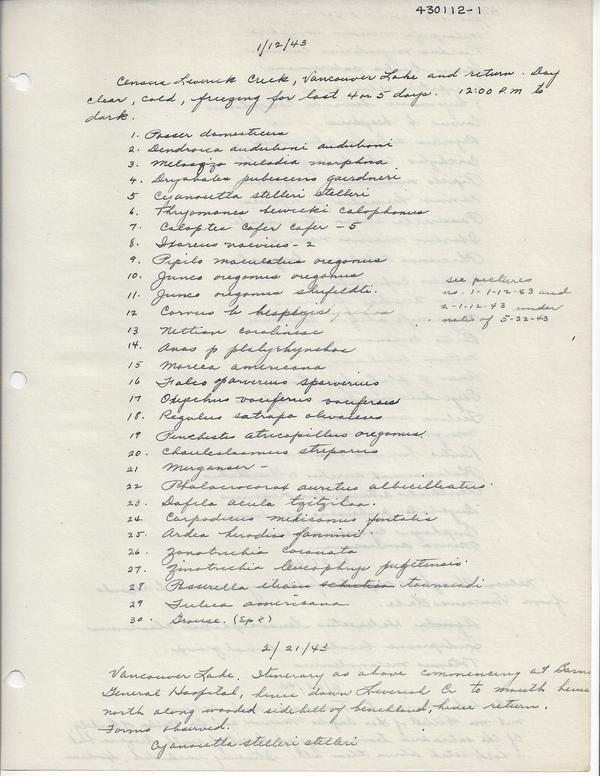 430112-1
1/12/43
Census Leverich Creek, Vancouver Lake and return. Day
clear, cold, freezing for last 4 or 5 days. 12:00 P.M to
dark.
1. Passer domesticus
2. Dendroica auduboni auduboni
3. Melospiza melodia morphna
4. Dryobates pubescens gairdneri
5 Cyanocitta stelleri stelleri
6. Thryomanes bewicki calophonus
7. Colaptes cafer cafer - 5
8. Ixoreus naevius - 2
9. Pipilo maculatus oregonus
10. Junco oregonus oregonus
11. Junco oregonus shufeldti.
see pictures
no. 1-1-12-43 and
2-1-12-43 under
notes of 5-22-43
12 Corvus b hesperis
13 Nettion carolinese
14. Anas p platyrhynchos
15 Mareca americana
16 Falco sparverius sparverius
17 Oxyechus vociferus vociferus
18. Regulus satrapa olivaceus
19 Penthestes atricapillus oregonus.
20. Chaulelasmus streparus
21 Merganser -
22 Phalacrocorax auritus albiciliatus.
23. Dafila acuta tzitzihoa.
24. Carpodicus mexicanus frontalis
25. Ardea herodias fannini.
26. Zonotrichia coronata
27. Zinotrichia leucophrys pugetensis
28 Passerella iliaca townsendi
29 Fulica americana
30. Grouse. (Sp?)
2/21/43
Vancouver Lake. Itinerary as above commencing at Barnes
General Hospital, hence down Leverich Cr to mouth hence
north along wooded sidehill of benchland, hence return.
Forms observed.
Cyanocitta stelleri stelleri